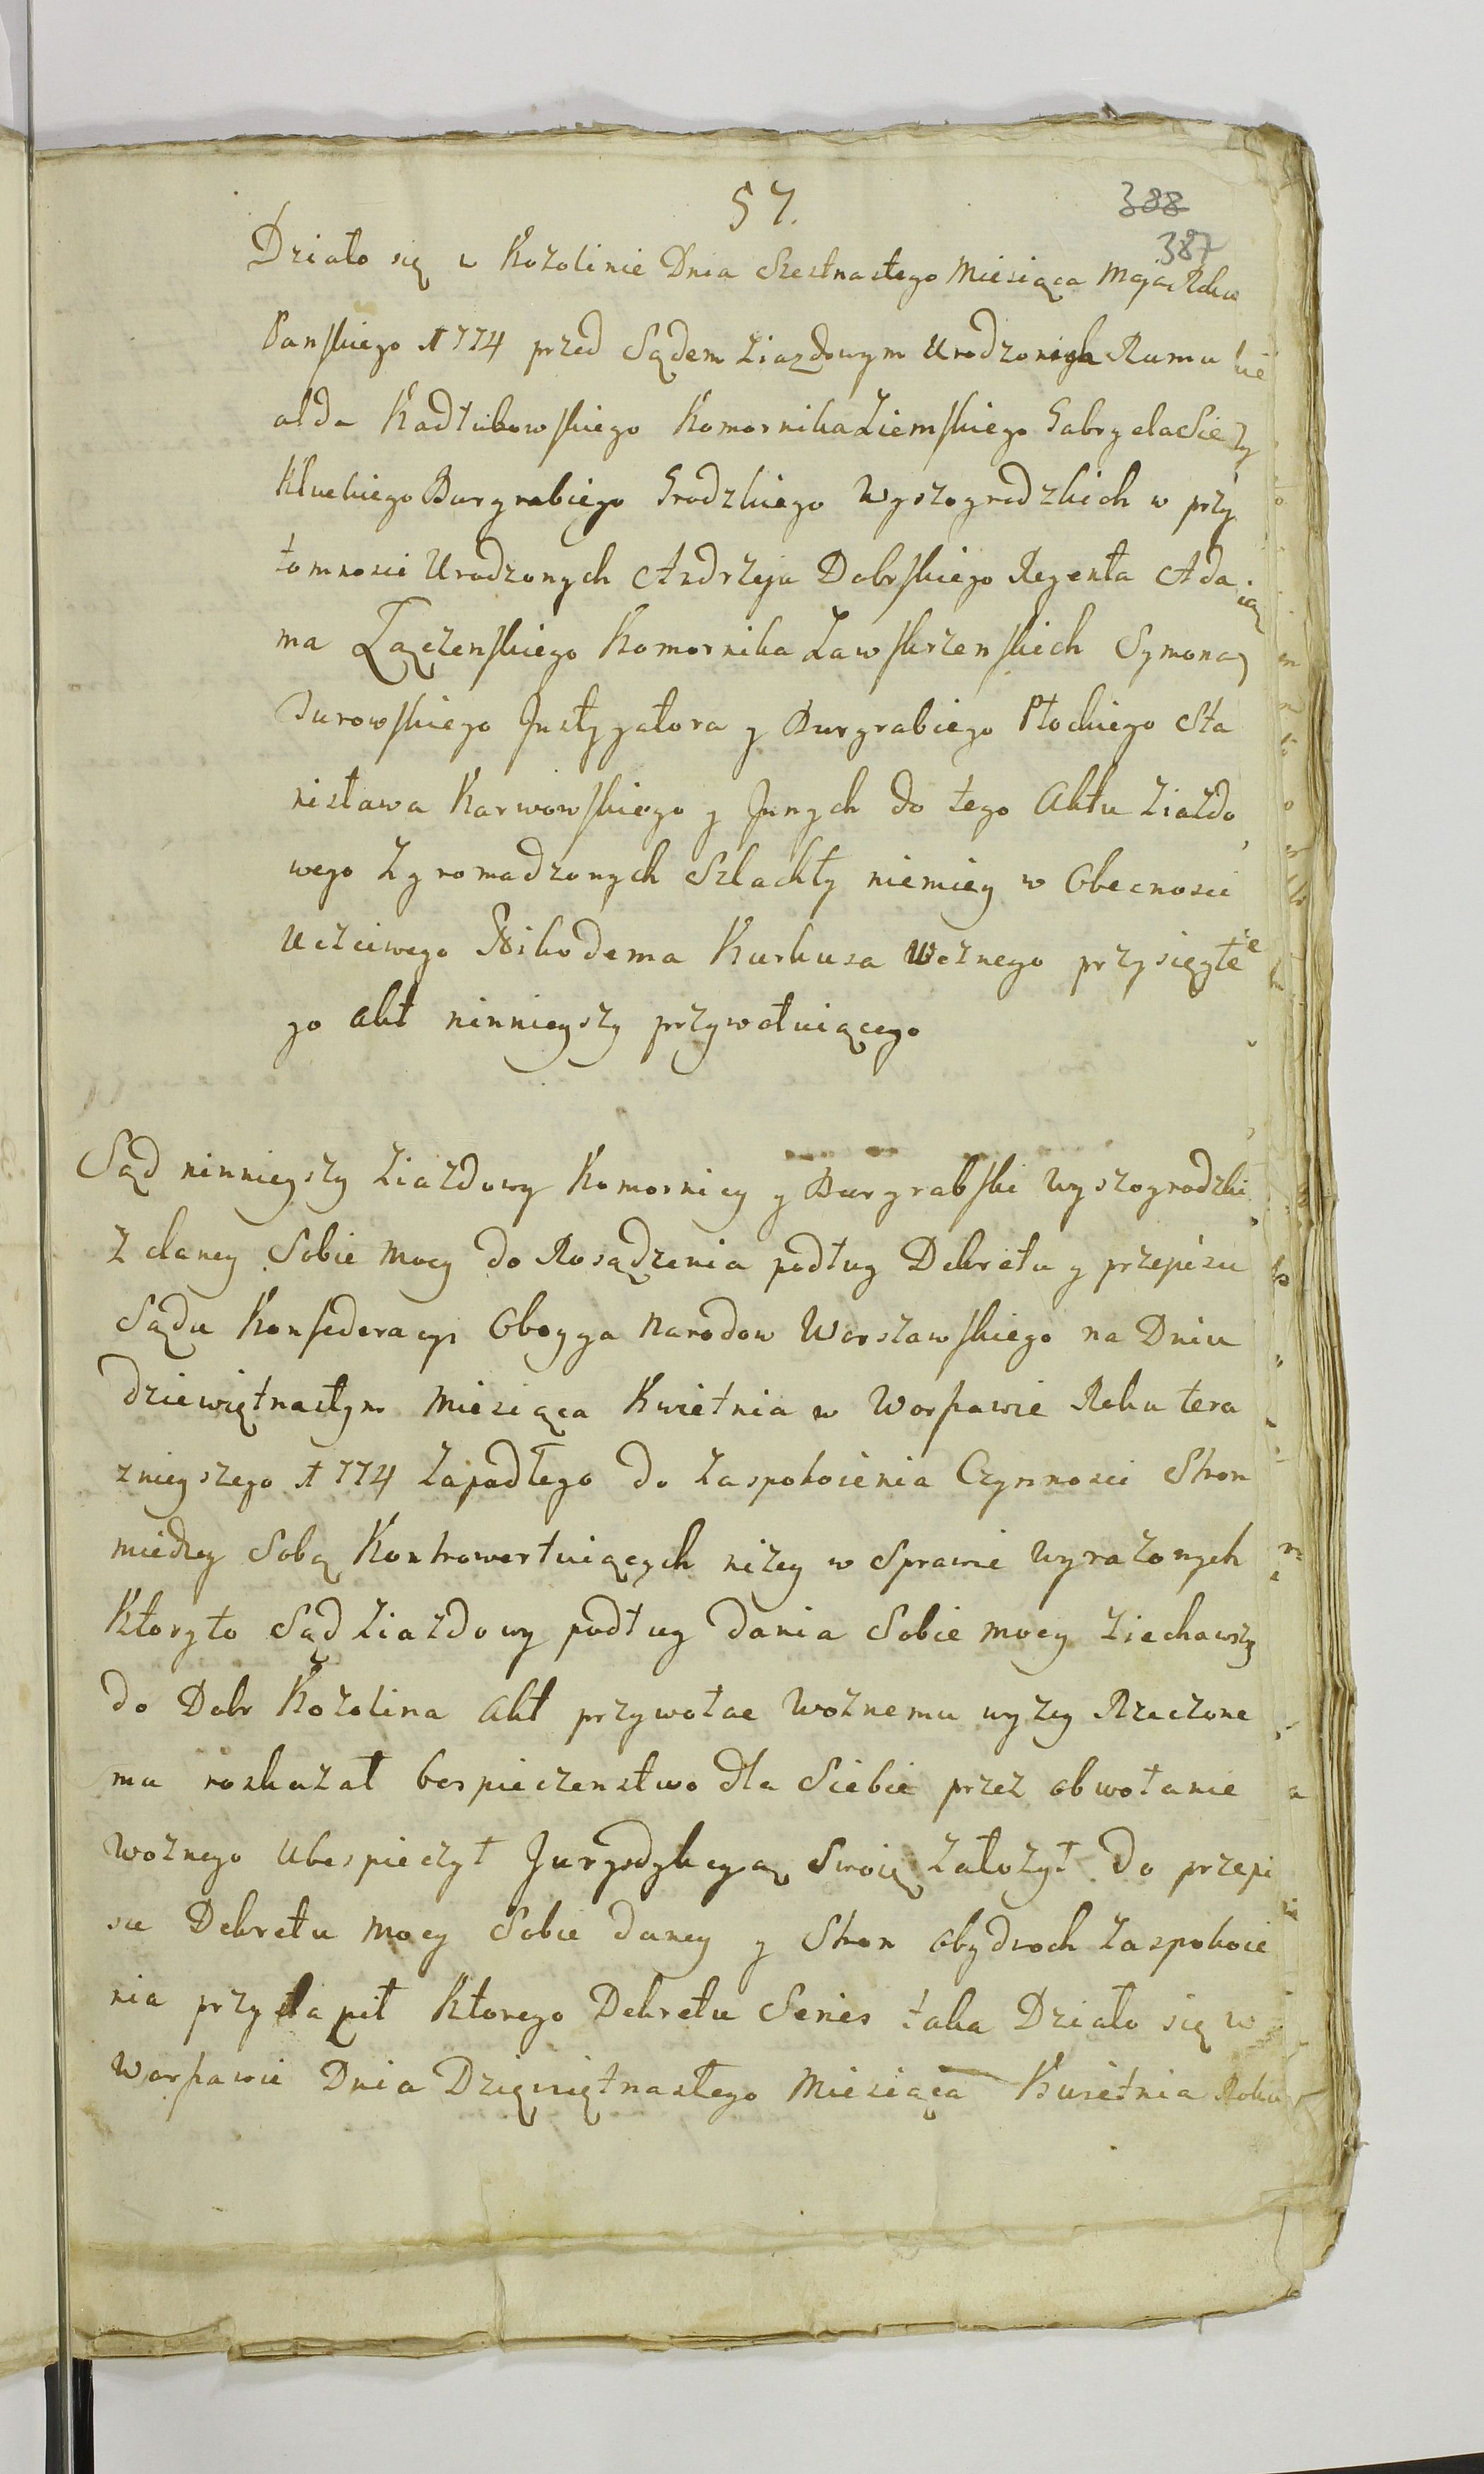 57.
388
387
Działo się w Kozolinie Dnia Szestnastego Miesiąca Maja Roku
Panskiego 1774 przed Sądem Ziazdowym Urodzonych Rumu
alda Kadłubowskiego Komornika Ziemskiego Gabryela Sie
Kluckiego Burgrabiego Grodzkiego Wyszogrodzkich w przy
tomnosci Urodzonych Andrzeja Dobrskiego Regenta Ada
ma Łączenskiego Komornika Zawskrzenskich Symona
Jurowskiego Justygatora y Burgrabiego Płockiego Sta
nisława Karwowskiego y Jnnych do tego Aktu Ziazdo
wego Zgromadzonych Szlachty niemiey w Obecnosci
Uczciwego Nikodema Kurkusa Woznego przysięgłe
go akt ninnieyszy przywołuiącego
Sąd ninnieyszy Ziazdowy Komorniczy y Burgrabski Wyszogrodzki
z daney Sobie mocy do Rosądzenia podług Dekretu y przepisu
Sądu Konfederacyi Oboyga Narodow Warszawskiego na Dniu
dziewiętnastym Miesiąca Kwietnia w Warszawie Roku tera
znieyszego 1774 Zapadłego do Zaspokoienia Czynnosci Stron
miedzy Sobą Kontrowertuiących niżey w Sprawie Wyrażonych
Ktoryto Sąd Ziazdowy podług dania Sobie mocy Ziechawszy
do Dobr Kozolina Akt przywołac Woznemu wyzey Rzeczone
mu roskazał bespieczenstwo dla Siebie przez obwołanie
Woznego Ubespieczył Jurysdykcyą Swoię Załozył do przepi
su Dekretu mocy Sobie daney y Stron obydwoch Zaspokoie
nia przystąpił Ktorego Dekretu Series taka Działo się w
Warszawie Dnia Dziewiętnastego Miesiąca Kwietnia Roku